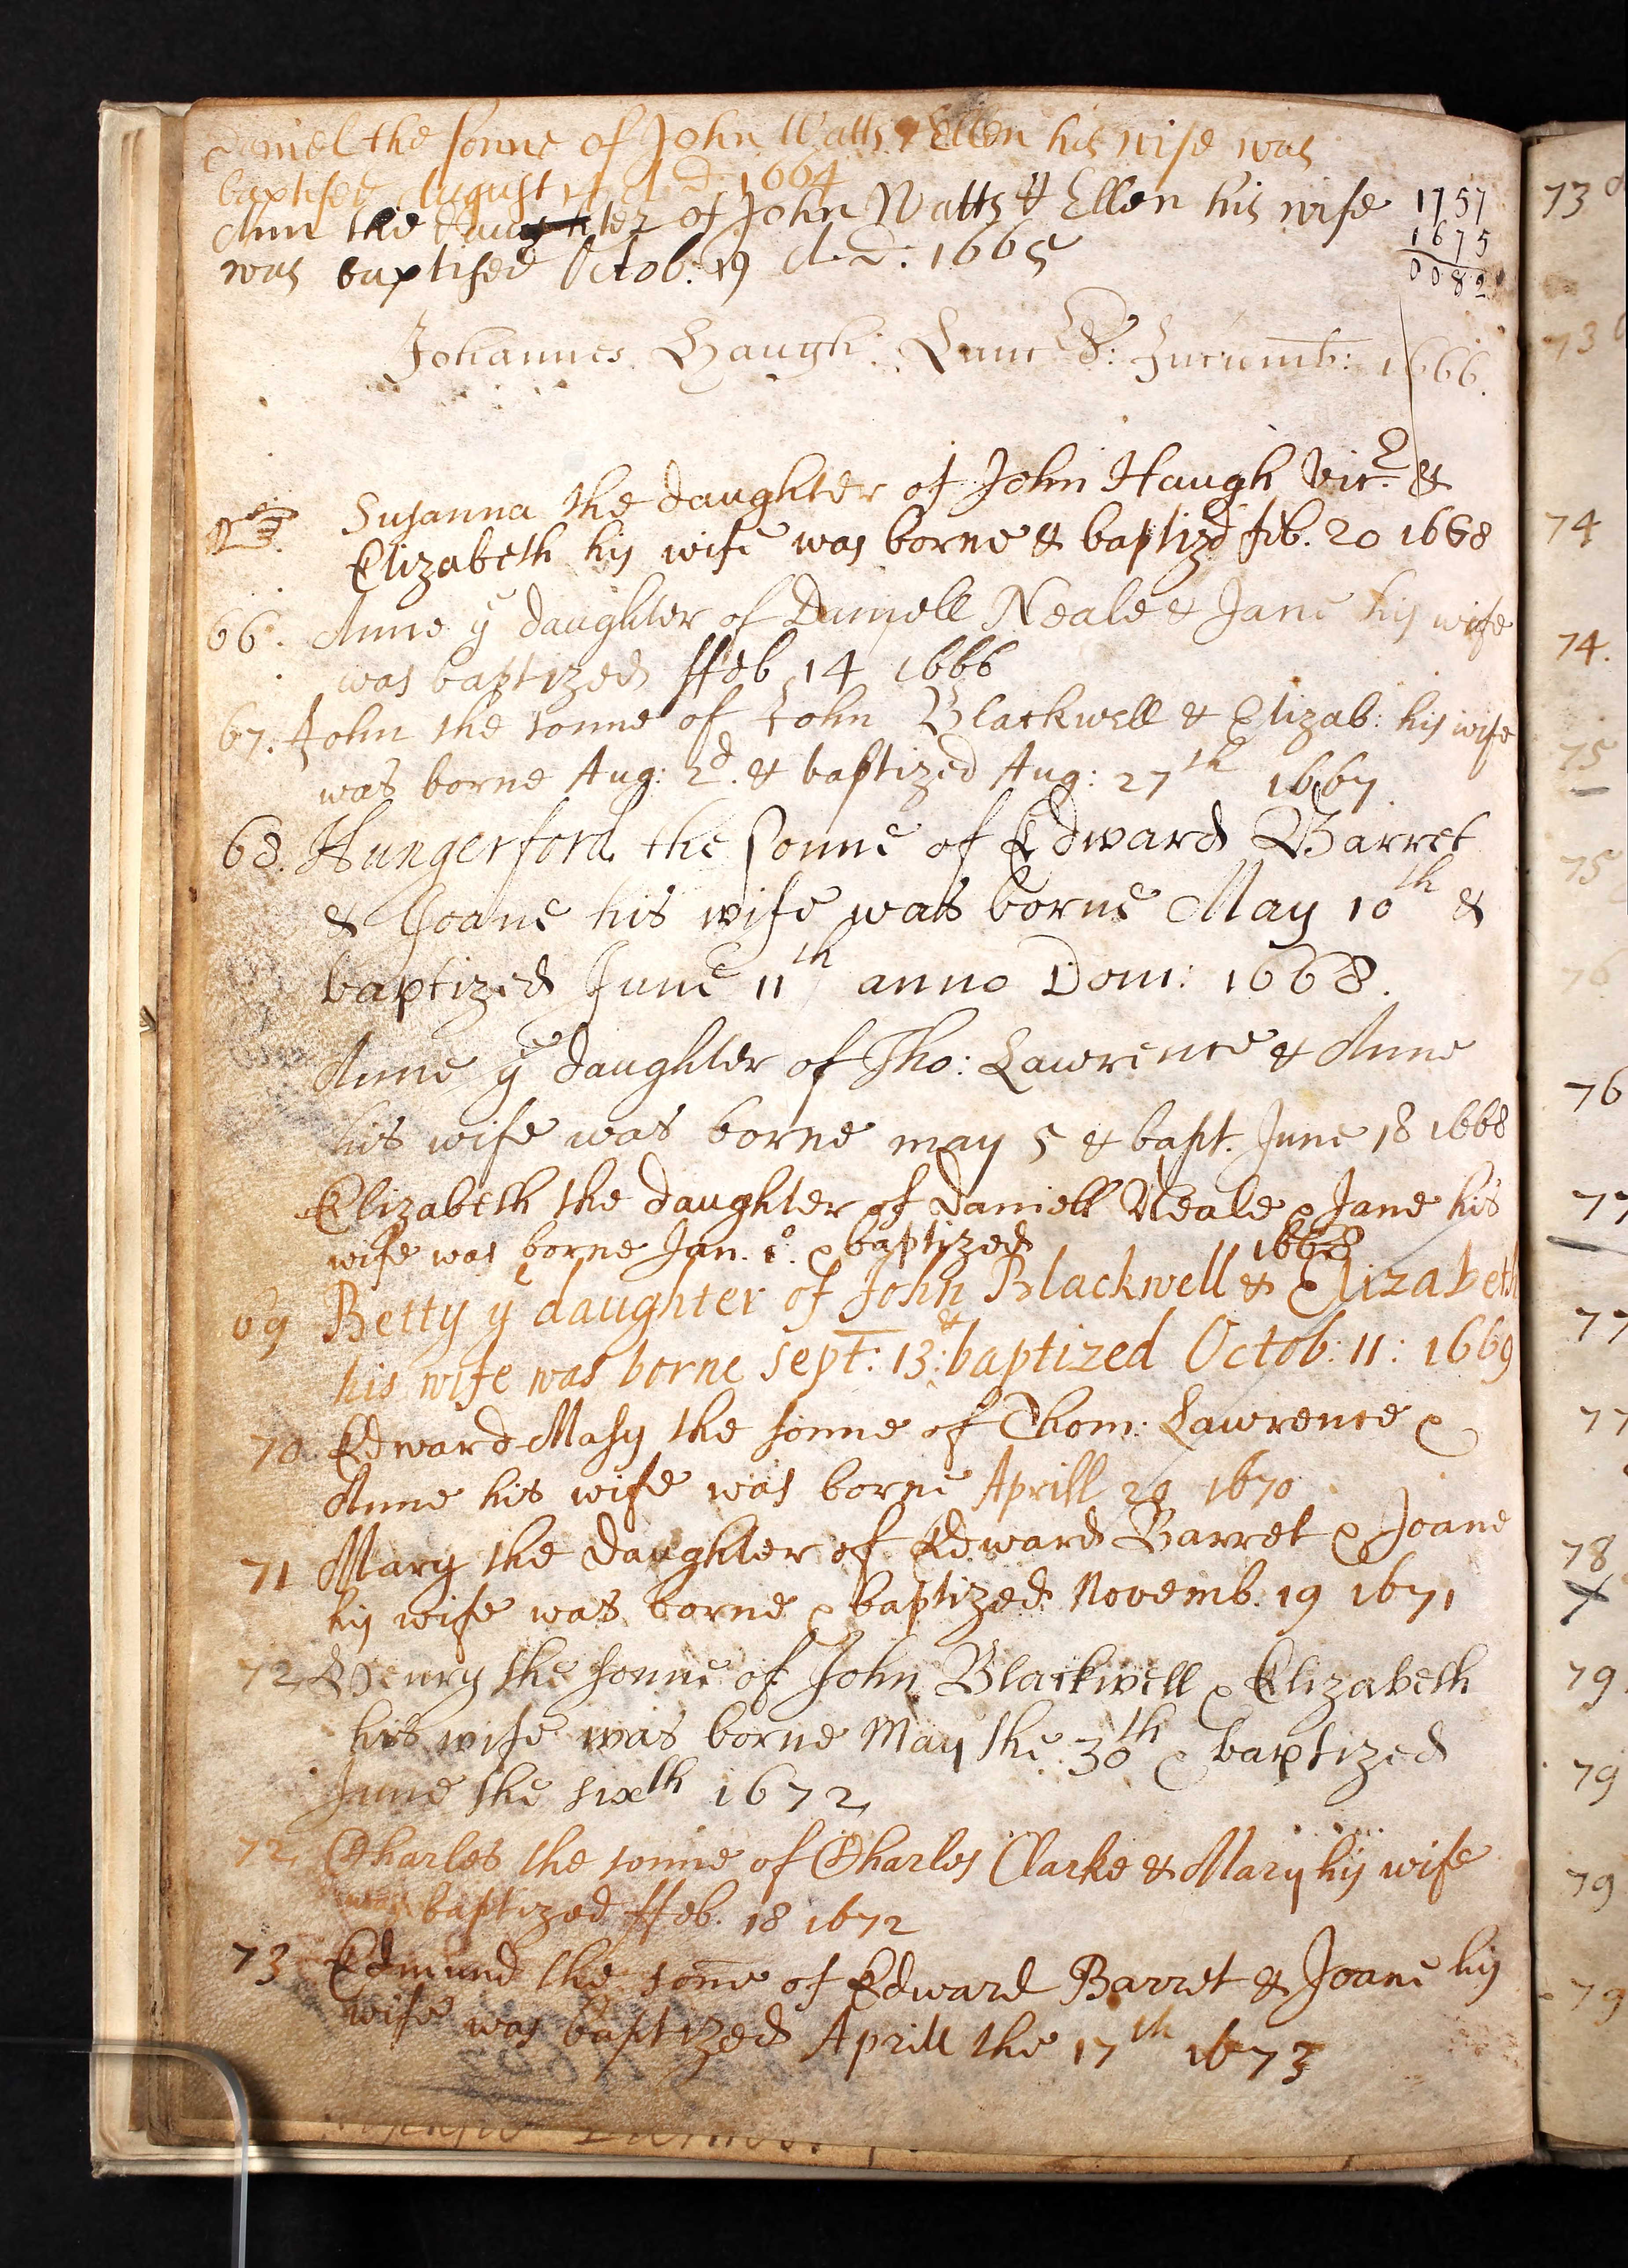 Daniel the sonne of John Watts & Ellen his wife was
baptised August 14 A. D: 1664
Ann the daughter of John Watts & Ellen his wife
was baptised Octob: 19 A. D: 1665
1757
1675
0082
Johannes Haugh: Incumb: 1666.
Susanna the daughter of John Haugh Vicr. &
Elizabeth his wife was borne & baptizd feb. 20 1668
66. Anne ye daughter of Daniell Neale & Jane his wife
was baptized ffeb 14 1666
67. John the sonne of John Blackwell & Elizab: his wife
was borne Aug: 2d. & baptized Aug: 27th 1667
68. Hungerford the sonne of Edward Barret
& Joane his wife was borne May 10th &
baptized June 11th anno Dom: 1668.
Anne ye daughter of Tho: Lawrence & Anne
his wife was borne may 5 & bapt. June 18 1668
Elizabeth the daughter of Daniell Neale & Jane his
wife was borne Jan. & baptized 1668
69 Betty ye daughter of John Blackwell & Elizabeth
his wife was borne Sept: 13: & baptized Octob: 11: 1669
70 Edward Masy the sonne of Thom: Lawrence &
Anne his wife was borne Aprill 29 1670
71 Mary the daughter of Edward Barret & Joane
his wife was borne & baptized Novemb. 19 1671
72 Henry the sonne of John Blackwell & Elizabeth
his wife was borne May the 30th & baptized
June the sixth 1672
72 Charles the sonne of Charles Clarke & Mary his wife
was baptized ffeb. 18 1672
73 Edmund the sone of Edward Barret & Joane his
wife was baptized Aprill the 17th 1673
73
73
74
74.
75
75
76
76
77
77
77
78
79
79
79
79